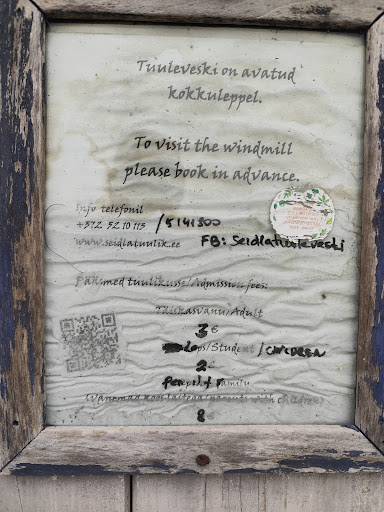 Tuuleveski on avatud
kokkuleppel.
To visit the windmill
please book in advance.
Info telefonil
+372 52 10 113 / 5141300
www.seidlatuulik.ee FB: Seidlatuuleveski
Pääsmed tuulikusse/Admission fees:
Täiskasvanu/Adult
3€
/Student / CHILDREN
2€
Family
8